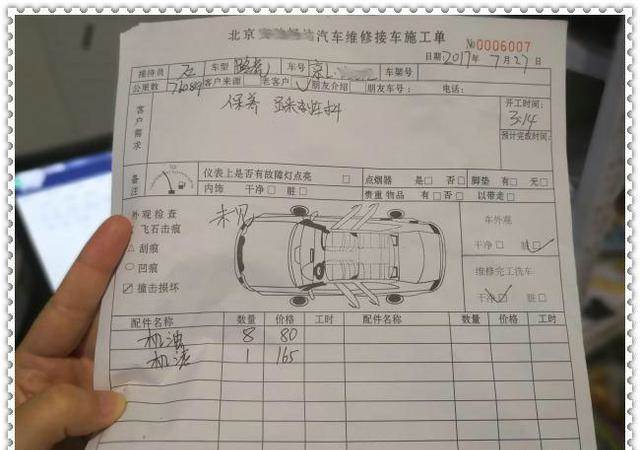 北京 汽车维修接车施工单
№0006007
日期：2017年7月27日
接待员 石 车型 路虎 车号 京 车架号
公里数 客户来源 老客户 ✓ 朋友介绍 朋友车号： 电话：
客户需求
保养
开工时间：
3:14
预计完成时间：
备注
仪表上是否有故障灯点亮 □ 点烟器 是□ 否□ 脚垫 有□ 无□
内饰 干净□ 脏□ 贵重物品 有□ 否□ 以带走□
外观检查
飞石击痕
△ 刮痕
○ 凹痕
☑ 撞击损坏
车外观
干净□ 脏☑
维修完工洗车
干净☑ 脏□
配件名称 数量 价格 工时 配件名称 数量 价格 工时
机油 8 80
机滤 1 165